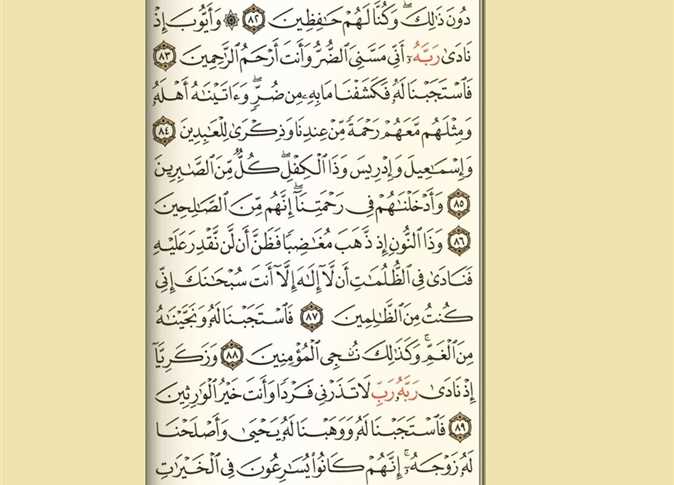 دُونَ ذَٰلِكَۖ وَكُنَّا لَهُمْ حَٰفِظِينَ ٨٢ ۞ وَأَيُّوبَ إِذْ
نَادَىٰ رَبَّهُۥٓ أَنِّي مَسَّنِيَ ٱلضُّرُّ وَأَنتَ أَرْحَمُ ٱلرَّٰحِمِينَ ٨٣
فَٱسْتَجَبْنَا لَهُۥ فَكَشَفْنَا مَا بِهِۦ مِن ضُرّٖۖ وَءَاتَيْنَٰهُ أَهْلَهُۥ
وَمِثْلَهُم مَّعَهُمْ رَحْمَةٗ مِّنْ عِندِنَا وَذِكْرَىٰ لِلْعَٰبِدِينَ ٨٤
وَإِسْمَٰعِيلَ وَإِدْرِيسَ وَذَا ٱلْكِفْلِۖ كُلّٞ مِّنَ ٱلصَّٰبِرِينَ
٨٥ وَأَدْخَلْنَٰهُمْ فِي رَحْمَتِنَآۖ إِنَّهُم مِّنَ ٱلصَّٰلِحِينَ
٨٦ وَذَا ٱلنُّونِ إِذ ذَّهَبَ مُغَٰضِبٗا فَظَنَّ أَن لَّن نَّقْدِرَ عَلَيْهِ
فَنَادَىٰ فِي ٱلظُّلُمَٰتِ أَن لَّآ إِلَٰهَ إِلَّآ أَنتَ سُبْحَٰنَكَ إِنِّي
كُنتُ مِنَ ٱلظَّٰلِمِينَ ٨٧ فَٱسْتَجَبْنَا لَهُۥ وَنَجَّيْنَٰهُ
مِنَ ٱلْغَمِّۚ وَكَذَٰلِكَ نُـۨجِي ٱلْمُؤْمِنِينَ ٨٨ وَزَكَرِيَّآ
إِذْ نَادَىٰ رَبَّهُۥ رَبِّ لَا تَذَرْنِي فَرْدٗا وَأَنتَ خَيْرُ ٱلْوَٰرِثِينَ
٨٩ فَٱسْتَجَبْنَا لَهُۥ وَوَهَبْنَا لَهُۥ يَحْيَىٰ وَأَصْلَحْنَا
لَهُۥ زَوْجَهُۥٓۚ إِنَّهُمْ كَانُوا۟ يُسَٰرِعُونَ فِي ٱلْخَيْرَٰتِ